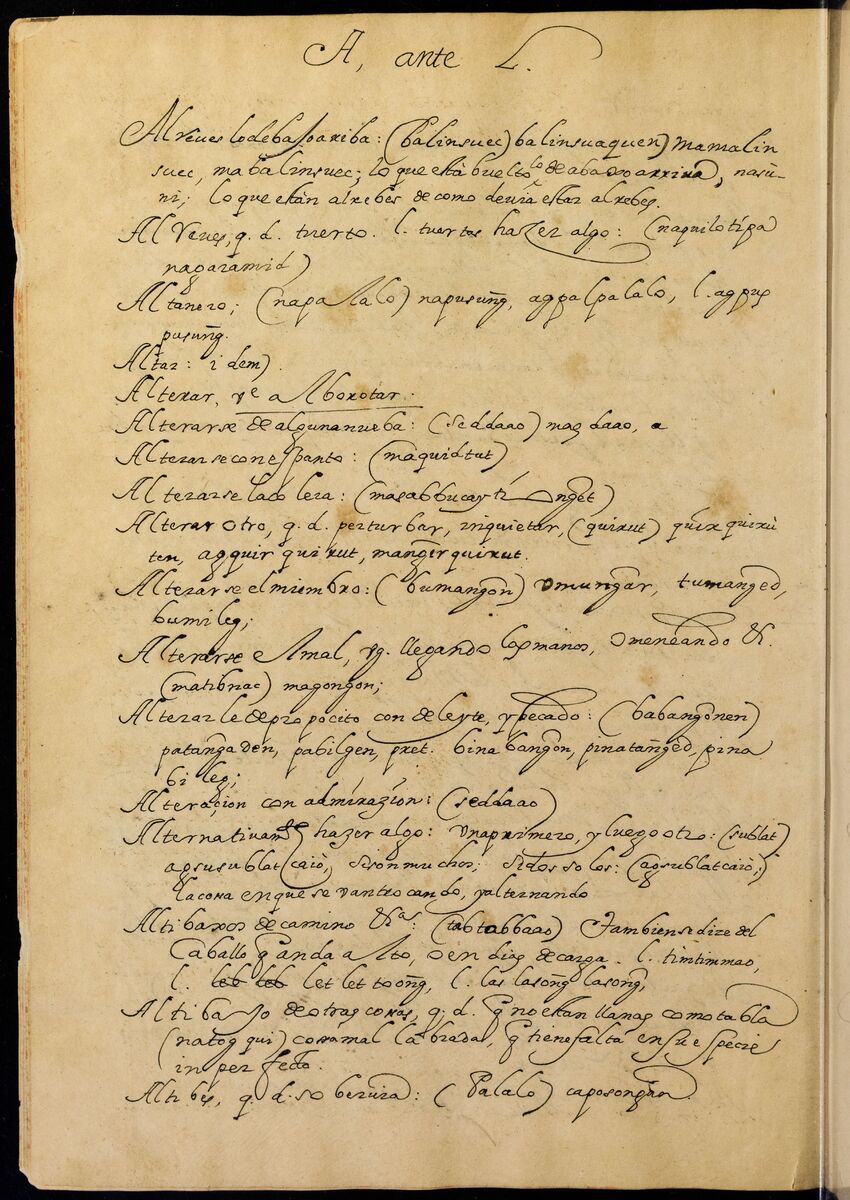 A, ante L.
Al reves lo de baxo ariba: (balinsuec) balinsuaquen) mamalin
suec, mabalinsuec; lo que està buelto lo de abaxo arriva, nasu-
ni; lo que estàn al rebes de como devia estar al rebes.
Al Reves, q. d. tuerto. l. tuertos hazer algo: (naquilo tipa
nagaramid)
Altanero; (napalalo) napusung̃, agpalpalalo, l. agpus
pusung̃.
Altar: idem).
Alterar, ve a Alborotar.
Alterarse de alguna nueba: (seddaao) magdaao, a
Alterarse con espanto: (maquidtut)
Alterarse la colera: (masabbucay ti Ong̃et)
Alterar otro, q. d. perturbar, inquietar, (quirut) quir quiru
ten, agquir quirut, mang̃irquirut.
Alterarse el miembro: (bumang̃on) umung̃ar, tumang̃ed,
bumileg;
Alterarse el mal, vg. llegando los manos, o meneando &.
(matibnac) magong̃on;
Alterarle de proposito con deleyte, y pecado: (babang̃onen)
patang̃aden, pabilgen, pret. binabang̃on, pinatang̃ed, pina
bileg;
Alteraçion con admirazion: (seddaao)
Alternativamte hazer algo: una primero, y luego otro: (sublat)
agsusublat (caio,) si son muchos; si dos solos: (agsublat caio;)
la cosa en que se van trocando, y alternando
Altibaxos de camino &as: (tabtabbaao) Tambien se dize del
Caballo q̃ anda alto, o en dias de carga. l. timtimmao,
l. leb leb let let toong̃, l. las lasong̃ lasong̃,
Altibaxo de otras cosas, q. d. q̃ no estan llanas como tabla
(natogqui) cosa mal labrada, q̃ tiene falta en su espècie
inperfecto.
Altibes, q. d. soberviа: (Palalo) caposong̃an.